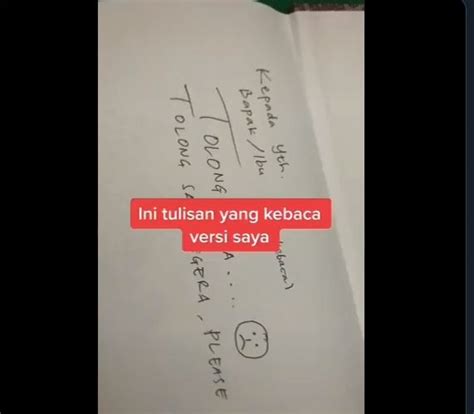 Kepada Yth.
Bapak/Ibu
TOLONG
TOLONG GERA, PLEASE
Ini tulisan yang kebaca
versi saya